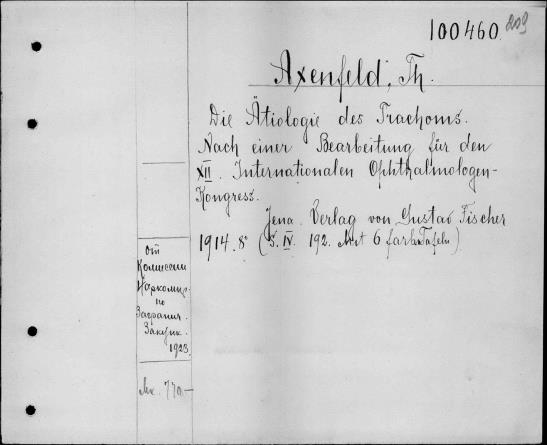 100460. 209
Axenfeld, Th.
Die Ätiologie des Trachoms.
Nach einer Bearbeitung für den
XII. Internationalen Ophthalmologen-
Kongress.
Jena. Verlag von Gustav Fischer
1914. 8° (S. IV. 192. Mit 6 farb. Tafeln)
от
Комиссии
Наркомпр.
по
Загранич.
Закупк.
1923.
770-